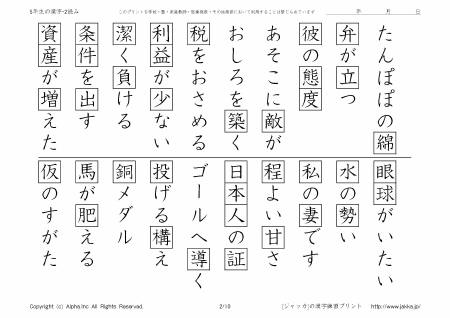 5年生の漢字-2読み
このプリントを学校・塾・家庭教師・医療機関・その他教室において利用することは禁じられています
年 月 日
たんぽぽの綿
弁が立つ
彼の態度
あそこに敵が
おしろを築く
税をおさめる
利益が少ない
潔く負ける
条件を出す
資産が増えた
眼球がいたい
水の勢い
私の妻です
程よい甘さ
日本人の証
ゴールへ導く
投げる構え
銅メダル
馬が肥える
仮のすがた
Copyright (c) Alpha.Inc All Rights Reserved.
2/10
[ジャッカ]の漢字練習プリント http://www.jakka.jp/